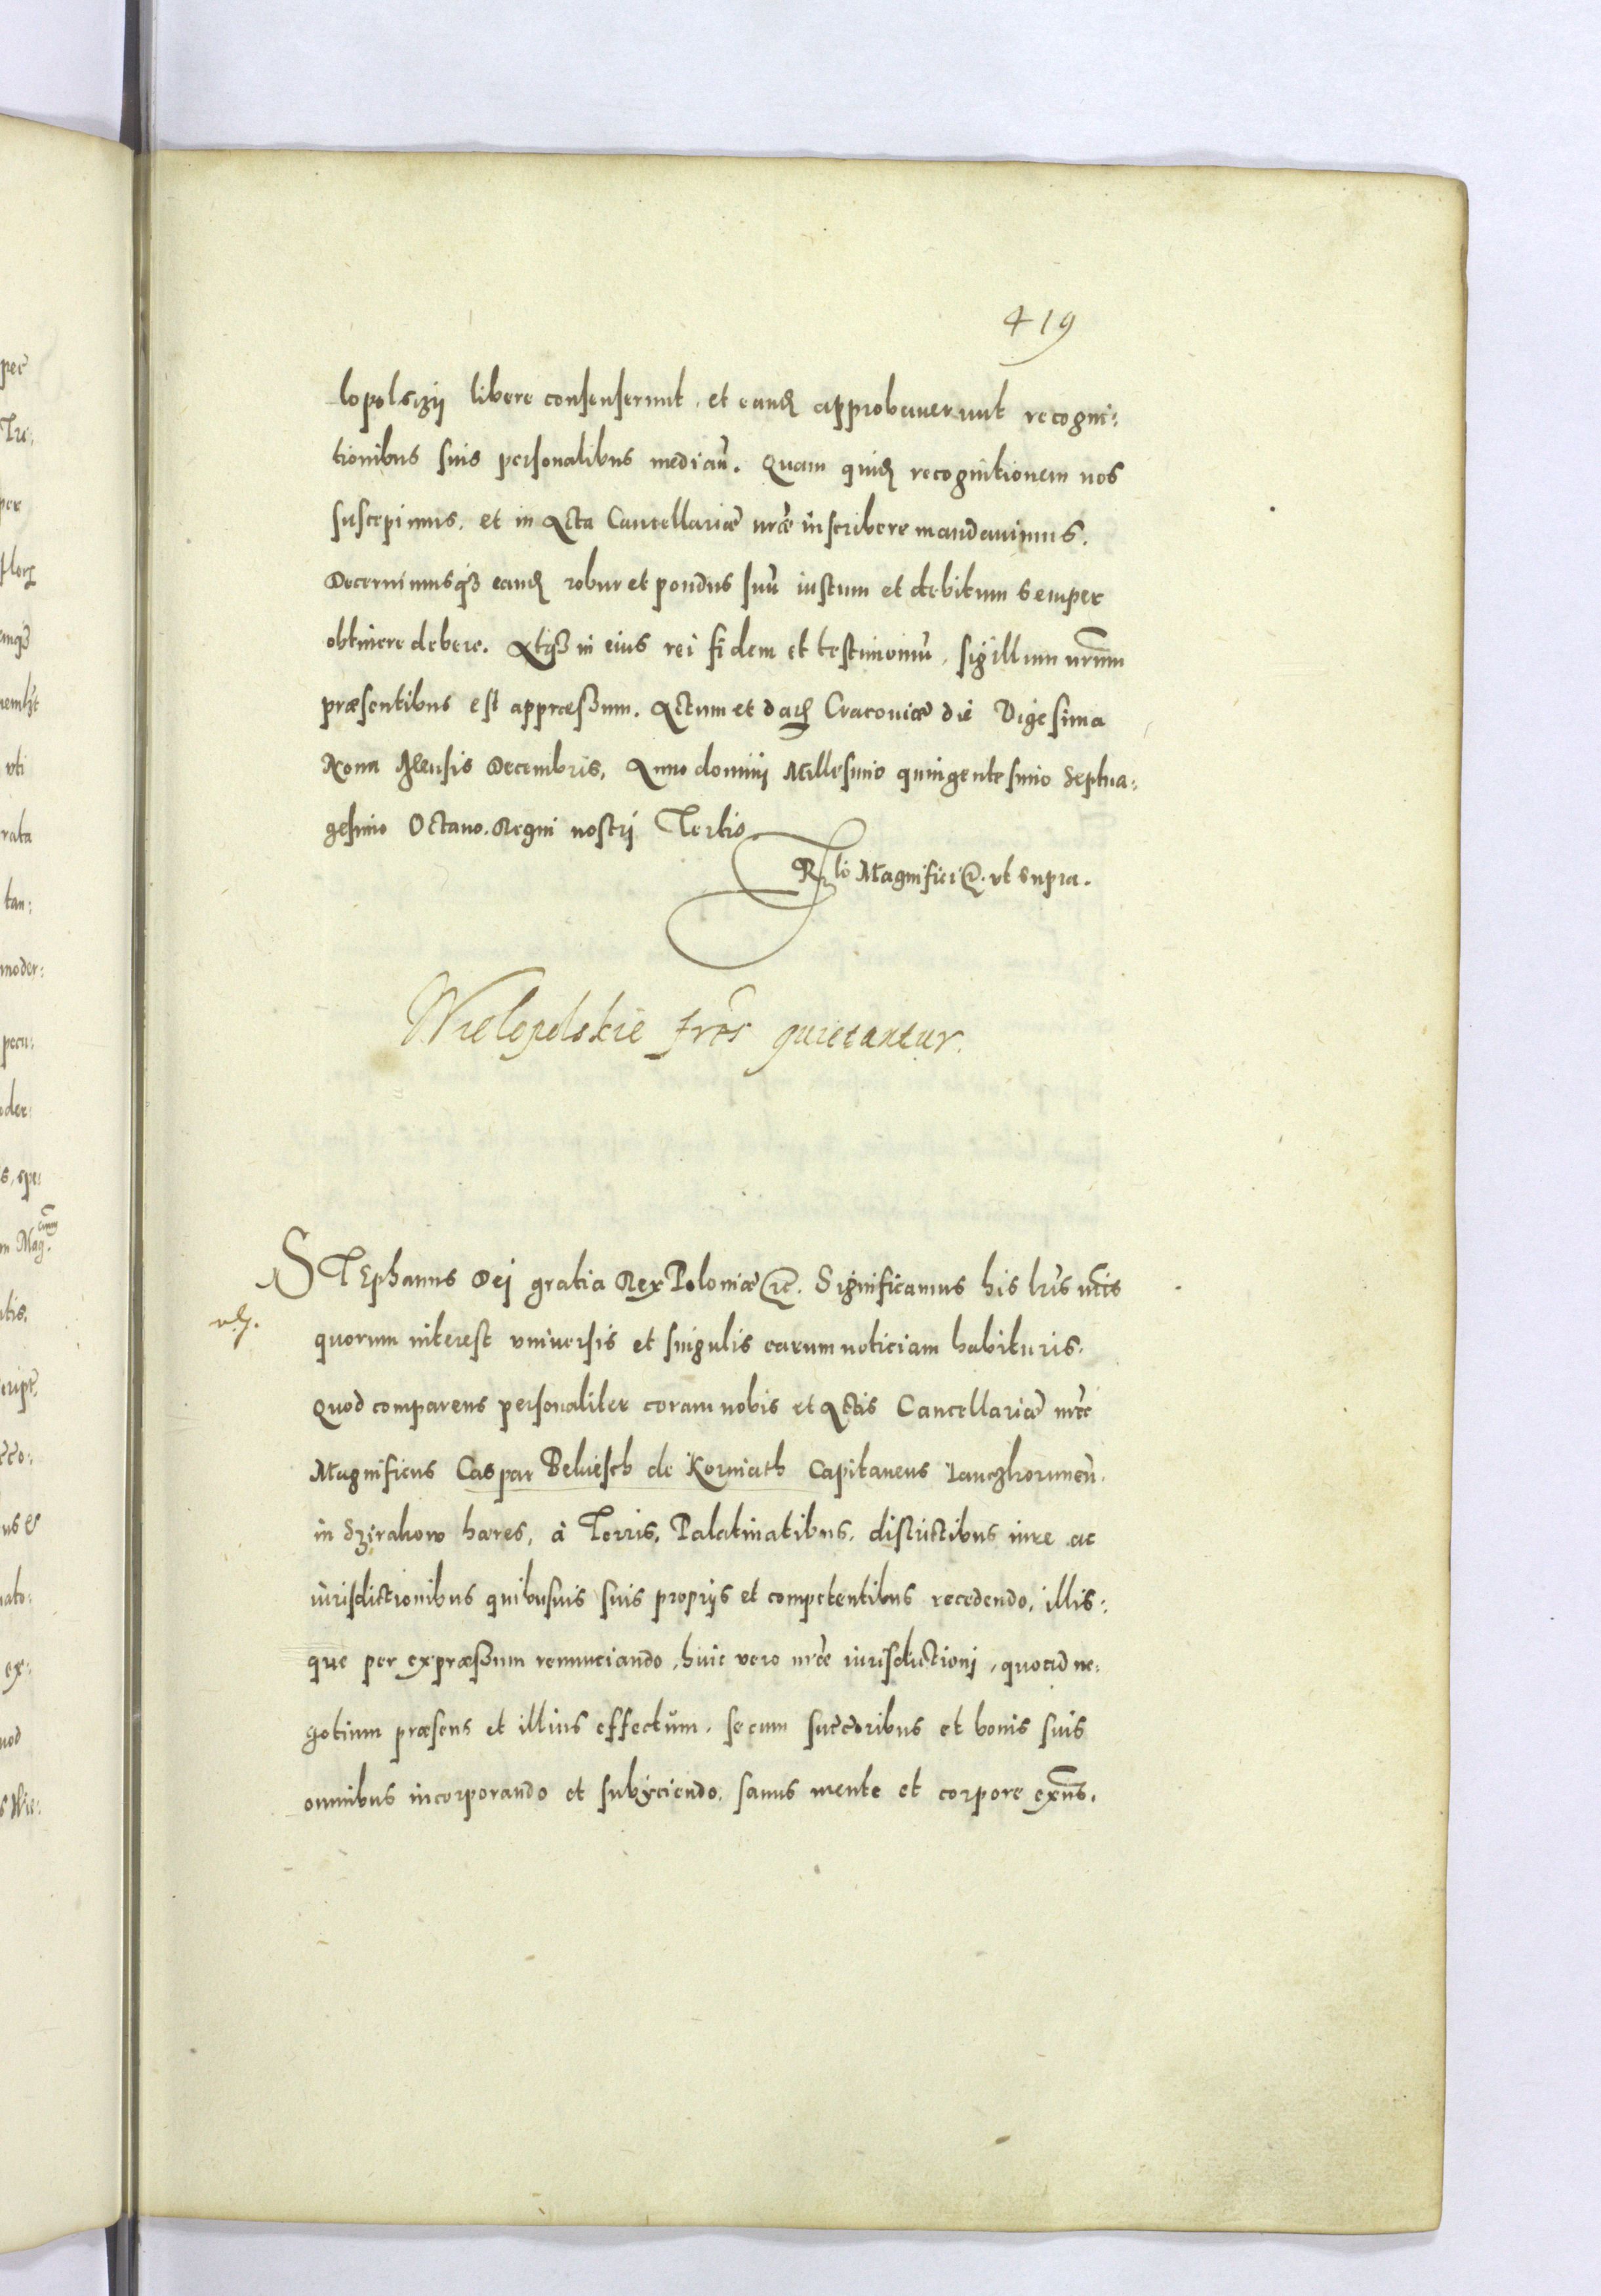 419
lopolsczij libere consenserunt, et eand approbauerunt recogni:
tionibus suis personalibus mediañ. Quam quid recognitionem nos
suscepimus, et in Acta Cancellariæ nræ inscribere mandauimus.
Decernimusq3 eand robur et pondus suũ iustum et debitum semper
obtinere debere. Atq3 in eius rei fidem et testimoniũ, sigillum nrũm
præsentibus est appræssum. Actum et dat Cracouiæ die Vigesima
Nona Mensis Decembris, Anno dominij Millesimo quingentesimo Septua:
gesimo Octauo. Regni nostrj Tertio
Rlo Magnifici etc. vt supra.
Wielepolskie frēs quietantur.
STEphanus Dej gratia Rex Poloniæ etc. Significamus his lris nris
quorum interest vniuersis et singulis earum noticiam habituris.
Quod comparens personaliter coram nobis et Actis Cancellariæ nræ
Magnificus Caspar Bekiesch de Korniath Capitaneus Lanczkorunen̄.
in Szirakow hæres, à Terris, Palatinatibus, districtibus iure ac
iurisdictionibus quibusuis suis proprijs et competentibus recedendo, illis:
que per expræssum renunciando, huic vero nræ iurisdictionj, quoad ne:
gotium præsens et illius effectũm, se cum succoribus et bonis suis
omnibus incorporando et subijciendo, sanus mente et corpore exñs.